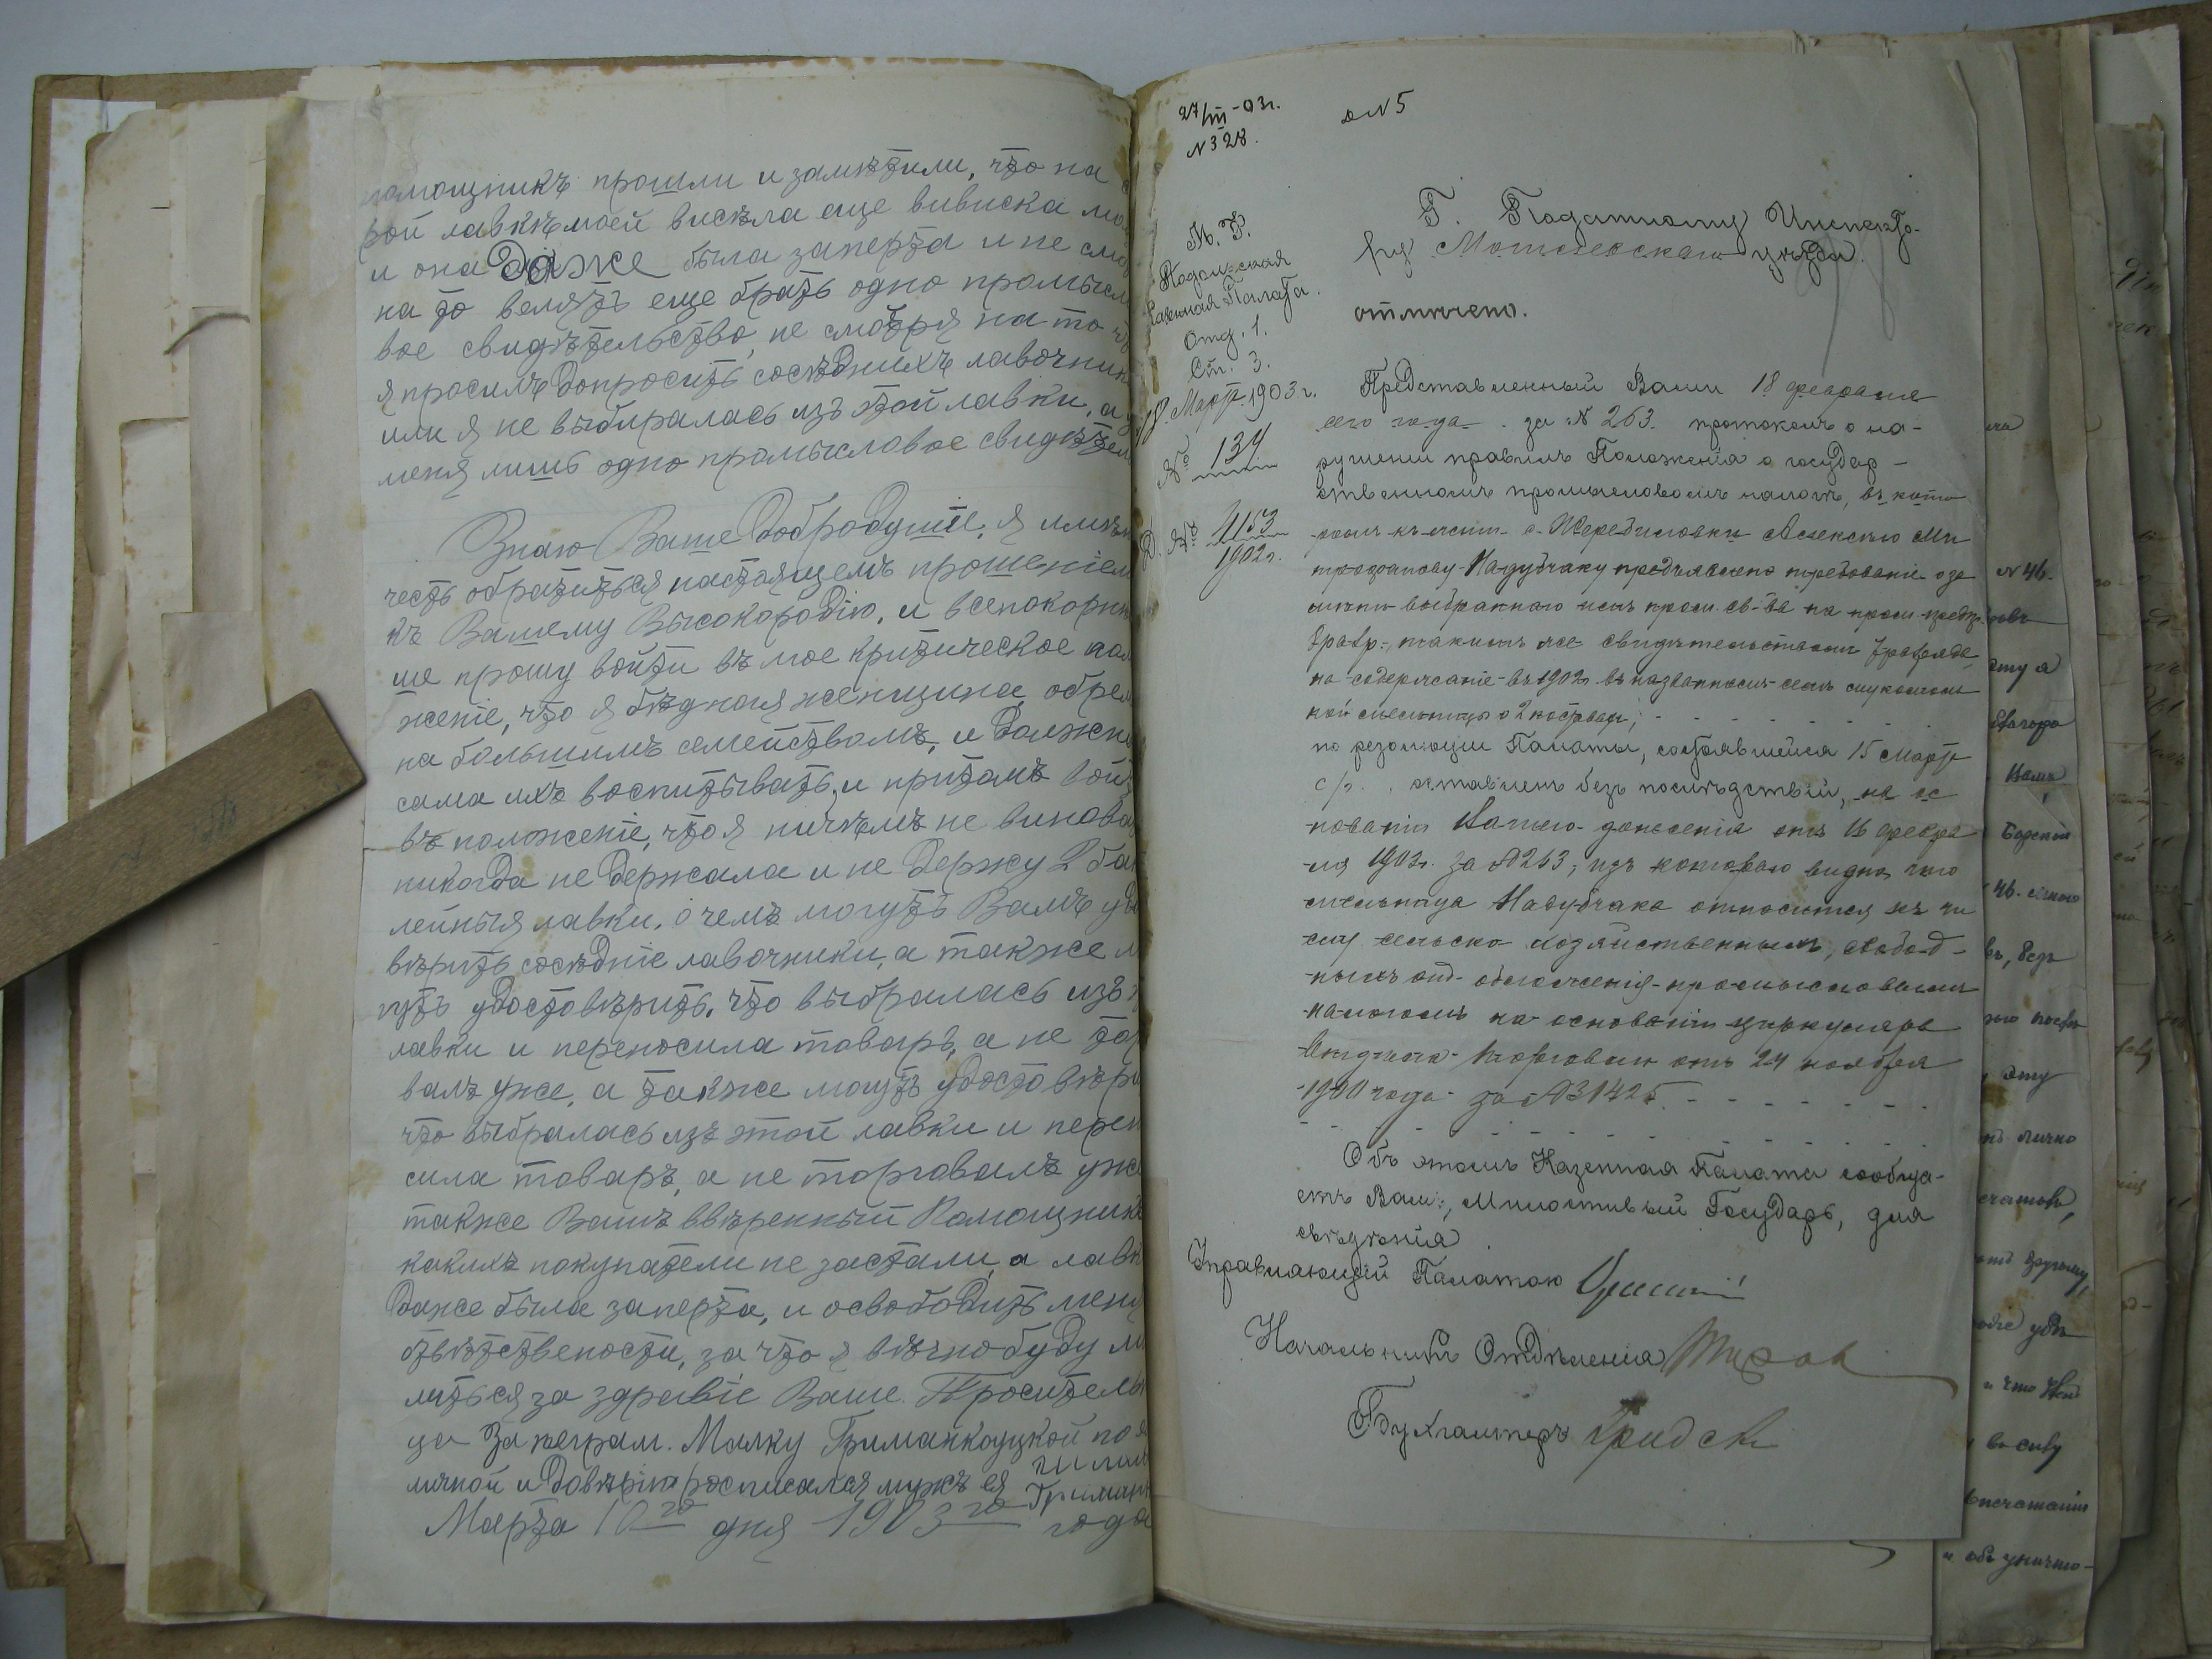 помощникъ прошли и замѣтили, что на
рой лавкѣ моей висѣла еще вивиска
и она даже была заперта и не
на то велятъ еще брать одно промысл
вое свидѣтельство, не смотря на то
я просилъ допросить сосѣднихъ лавочник
или я не выбиралась изъ этой лавки, а
меня лишь одно промысловое свидѣтел
Знаю Ваше Добродушіе, я имѣю
честь обратиться настоящемъ прошеніем
къ Вашему Высокородію, и всепокорнѣ
ше прошу войти въ мое критическое пол
женіе, что я бѣдная женщина, обре
на большимъ семействомъ, и должна
сама ихъ воспитывать, и притомъ вой
въ положеніе, что я ничѣмъ не винова
никогда не держала и не держу 2 бак
лейныя лавки, о чемъ могутъ Вамъ удо
вѣрить сосѣдніе лавочники, а также
гутъ удостовѣрить, что выбралась изъ
лавки и переносила товаръ, а не тор
валъ уже, а также могутъ удостовѣри
что выбралась изъ этой лавки и перен
сила товаръ, а не торговалъ уже
также Вашъ ввѣренный Помощникъ
какихъ покупатели не застали, а лавк
даже была заперта, и освободить меня
отвѣтствености, за что я вѣчно буду
литься за здравіе Ваше. Просительн
ца За неграм. Малку Гриманкоуцкой по я
личной и довѣрію росписался мужъ ея
Марта 10го дня 1903го года
27/III-03г.
№ 328.
№ 5
М. Ф.
Подольская
Казенная Палата.
Отд. 1.
Ст. 3.
18 Марта 1903 г.
№ 134
Д. № 4153
1902 г.
Г. Податному Инспекто-
ру Могилевскаго уѣзда.
отмѣчено.
Представленный Вами 18 февраля
сего года за № 263. протоколъ о на-
рушеніи правилъ Положенія о государ-
ственномъ промысловомъ налогѣ, въ кото
ромъ къ жит. с. Жеребиловки Алексѣю Ми
трофанову Надубчаку предъявлено требованіе о за
мѣнѣ выбраннаго имъ пром. св-ва на пром. предпр.
разр., такимъ же свидѣтельствомъ разряда
на содержаніе въ 1902 г. въ названномъ селѣ
кой мельницы о 2 поставахъ,
по резолюціи Палаты, состоявшейся 15 Марта
с/г. оставленъ безъ послѣдствій, на ос
нованіи Вашего донесенія отъ 16 февра
ля 1903 г. за № 263, изъ котораго видно, что
мельница Надубчака относится къ чи
слу сельско хозяйственныхъ, свобод-
ныхъ отъ обложенія промысловымъ
налогомъ на основаніи циркуляра
Д-та Торговли отъ 24 ноября
1900 года за № 31425.
Объ этомъ Казенная Палата сообща-
етъ Вамъ, Милостивый Государь, для
свѣдѣнія.
Управляющій Палатою
Начальникъ Отдѣленія
Бухгалтеръ
№ 46.
Вамъ
лично